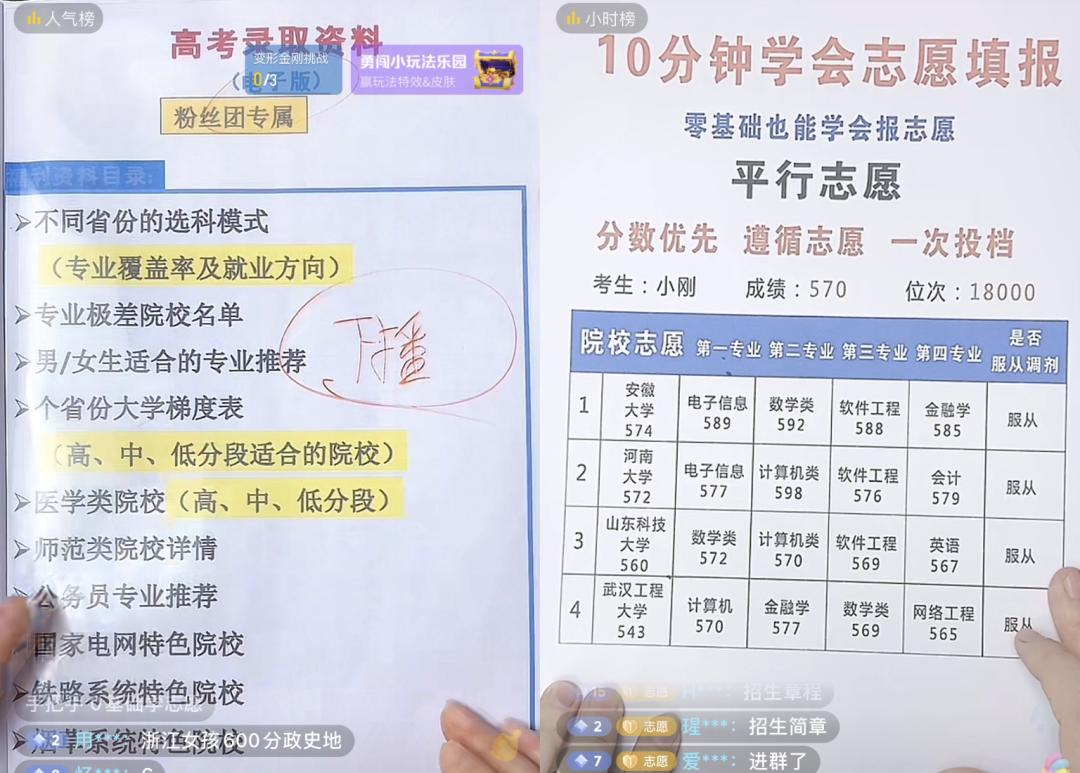 人气榜
高考录取资料
变形金刚挑战
0/3
勇闯小玩法乐园
赢玩法特效&皮肤
（电子版）
粉丝团专属
福利资料目录:
➢不同省份的选科模式
（专业覆盖率及就业方向）
➢专业极差院校名单
➢男/女生适合的专业推荐
➢个省份大学梯度表
（高、中、低分段适合的院校）
➢医学类院校（高、中、低分段）
➢师范类院校详情
➢公务员专业推荐
➢国家电网特色院校
➢铁路系统特色院校
手把手0基础学志愿
2 用***： 浙江女孩600分政史地
下播
小时榜
10分钟学会志愿填报
零基础也能学会报志愿
平行志愿
分数优先 遵循志愿 一次投档
考生：小刚 成绩：570 位次：18000
院校志愿 第一专业 第二专业 第三专业 第四专业 是否服从调剂
1 安徽大学 574 电子信息 589 数学类 592 软件工程 588 金融学 585 服从
2 河南大学 572 电子信息 577 计算机类 598 软件工程 576 会计 579 服从
3 山东科技大学 560 数学类 572 计算机类 570 软件工程 569 英语 567 服从
4 武汉工程大学 543 计算机 570 金融学 577 数学类 569 网络工程 565 服从
15 志愿 招生章程
2 志愿 瑆***： 招生简章
7 志愿 爱***： 进群了